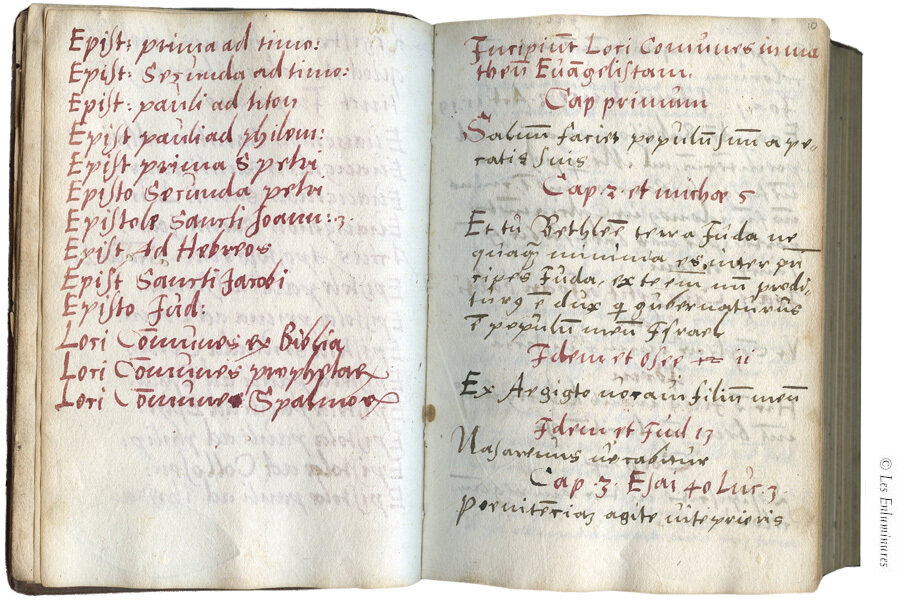 Epist: prima ad timo:
Epist: Secunda ad timo:
Epist: pauli ad titon
Epist pauli ad philem:
Epist prima S petri
Episto Secunda petri
Epistole Sancti Joann: 3.
Epist Ad Hebreos
Epist Sancti Jacobi
Episto Jud:
Loci Cōmunes ex Biblia
Loci Cōmunes prophetaꝝ
Loci Cōmunes Spalmoꝝ
Incipiūt Loci Comunes in ma
theū Euāgelistam.
Cap primum
Saluū faciet populū suū a pe-
catis suis
Cap. 2. et michae 5
Et tu Bethleē terra Juda ne
quaq̃ minima es inter prī
cipes Juda, ex te em̄ mı̄ prodi-
turꝰ ē dux q̄ gubernaturus
ē populū meū Israel
Idem et osee 11
Ex Aegigto vocavi filiū meū
Idem et Jud 13
Nasarenus vocabitur
Cap. 3. Esai 40 Luc. 3.
Poenitēciaʒ agite vite prioris
© Les Enluminures